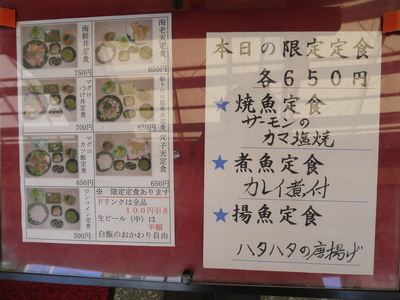 海鮮丼定食
750円
海老天定食
650円
マグロづけ丼定食
700円
650円
マグロカツ飯定食
650円
穴子天定食
650円
ワンコイン定食
500円
※ 限定定食あります
ドリンクは全品
100円引き
生ビール(中)は
半額
白飯のおかわり自由
本日の限定定食
各650円
★焼魚定食
サーモンの
カマ塩焼
★煮魚定食
カレイ煮付
★揚魚定食
ハタハタの唐揚げ